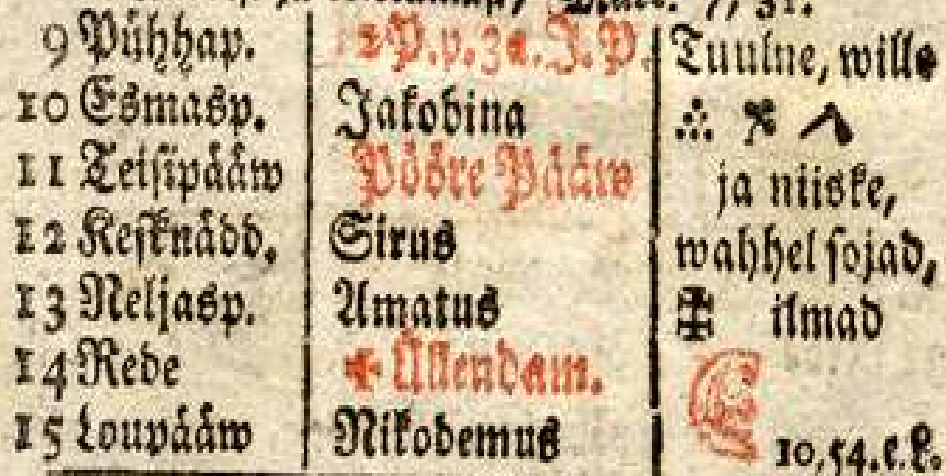 9 Pühhap. 12 P. p. 3 a. J. P. Tuulne, wilo
10 Esmasp. Jakobina
11 Teisipääw Pööre Pääw ja niiske,
12 Keſknädd. Sirus wahhel ſojad,
13 Neljasp. Amatus ilmad
14 Rede Üllendam.
15 Loupääw Nikodemus 10, 54. e. L.